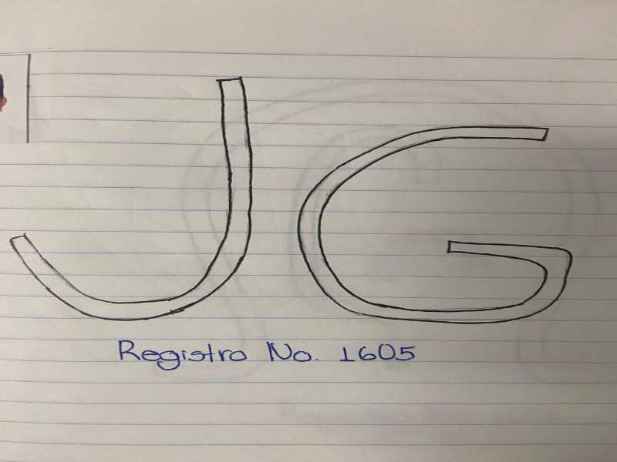 JG
Registro No. 1605